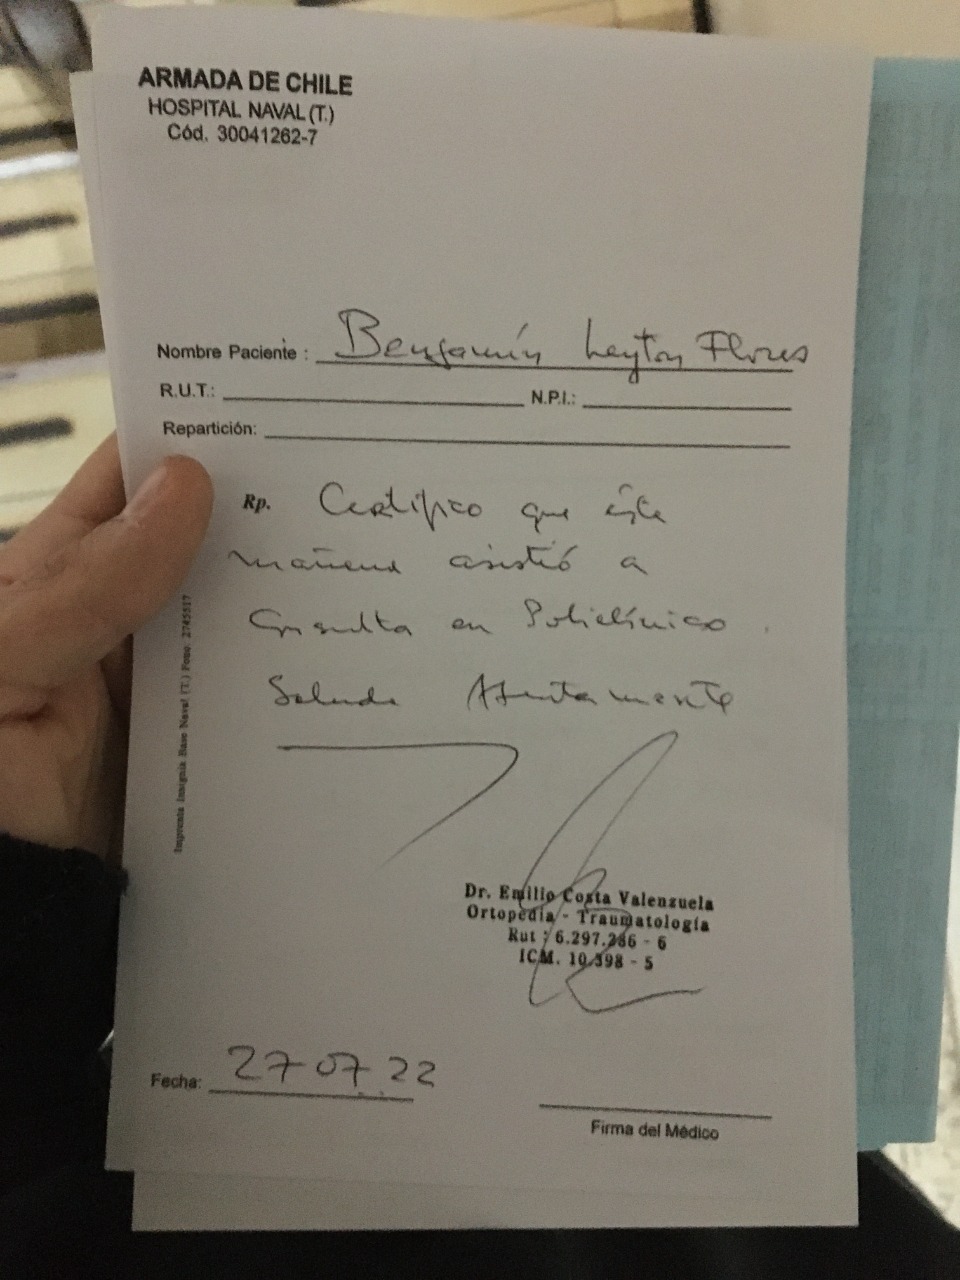 ARMADA DE CHILE
HOSPITAL NAVAL (T.)
Cód. 30041262-7
Nombre Paciente : Benjamín Leyton Flores
R.U.T.: N.P.I.:
Repartición:
Rp. Certifico que ésta
mañana asistió a
Consulta en Policlínico.
Saluda Atentamente
Dr. Emilio Costa Valenzuela
Ortopedia - Traumatología
Rut : 6.297.286 - 6
ICM. 10.398 - 5
Fecha: 27 07 22
Firma del Médico
Imprenta Insignia Base Naval (T.) Fono: 2745517